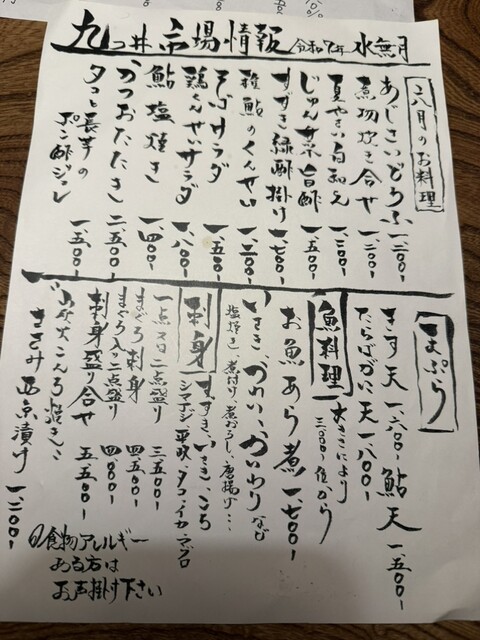 九つ井 市場情報 令和7年 水無月
二八月のお料理
あじさいどうふ 一、二〇〇-
煮物炊き合せ 一、二〇〇-
夏やさい白和え 一、二〇〇-
じゅん菜旨酢 一、五〇〇-
すずき緑酢掛け 一、七〇〇-
稚鮎のくんせい 一、二〇〇-
そばサラダ 一、五〇〇-
鶏くんせいサラダ 一、八〇〇-
鮎塩焼き 一、四〇〇-
かつおたたき 二、五〇〇-
タコと長芋の
ポン酢ジュレ 一、五〇〇-
天ぷら
きす天 一、六〇〇- 鮎天 一、五〇〇-
たらばがに天 一、八〇〇-
魚料理 大きさにより
三、〇〇〇-位から
お魚あら煮 一、七〇〇-
いさき、かれい、かいわりなど
塩焼き、煮付け、煮おろし、唐揚げ…
刺身 すずき、いさき、こち
シマアジ、平政、タコ、イカ、マグロ
一点又は二点盛り 三、五〇〇-
まぐろ刺身 四、五〇〇-
まぐろ入り二点盛り 四、〇〇〇-
刺身盛り合せ 五、五〇〇-
こんろ焼き
ささみ西京漬け 一、二〇〇-
食物アレルギー
ある方は
お声掛け下さい